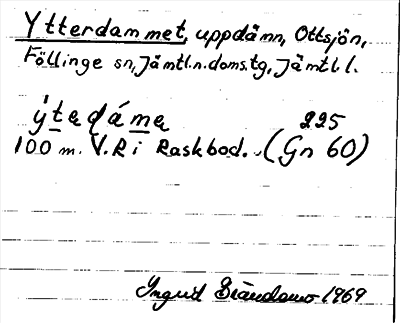 Ytterdammet, uppdämn, Ottsjön,
Föllinge sn, Jämtl.n.doms.tg, Jämtl l.
ýtedáme 225
100 m. V.R i Raskbod. (Gn 60)
Ingrid 1969